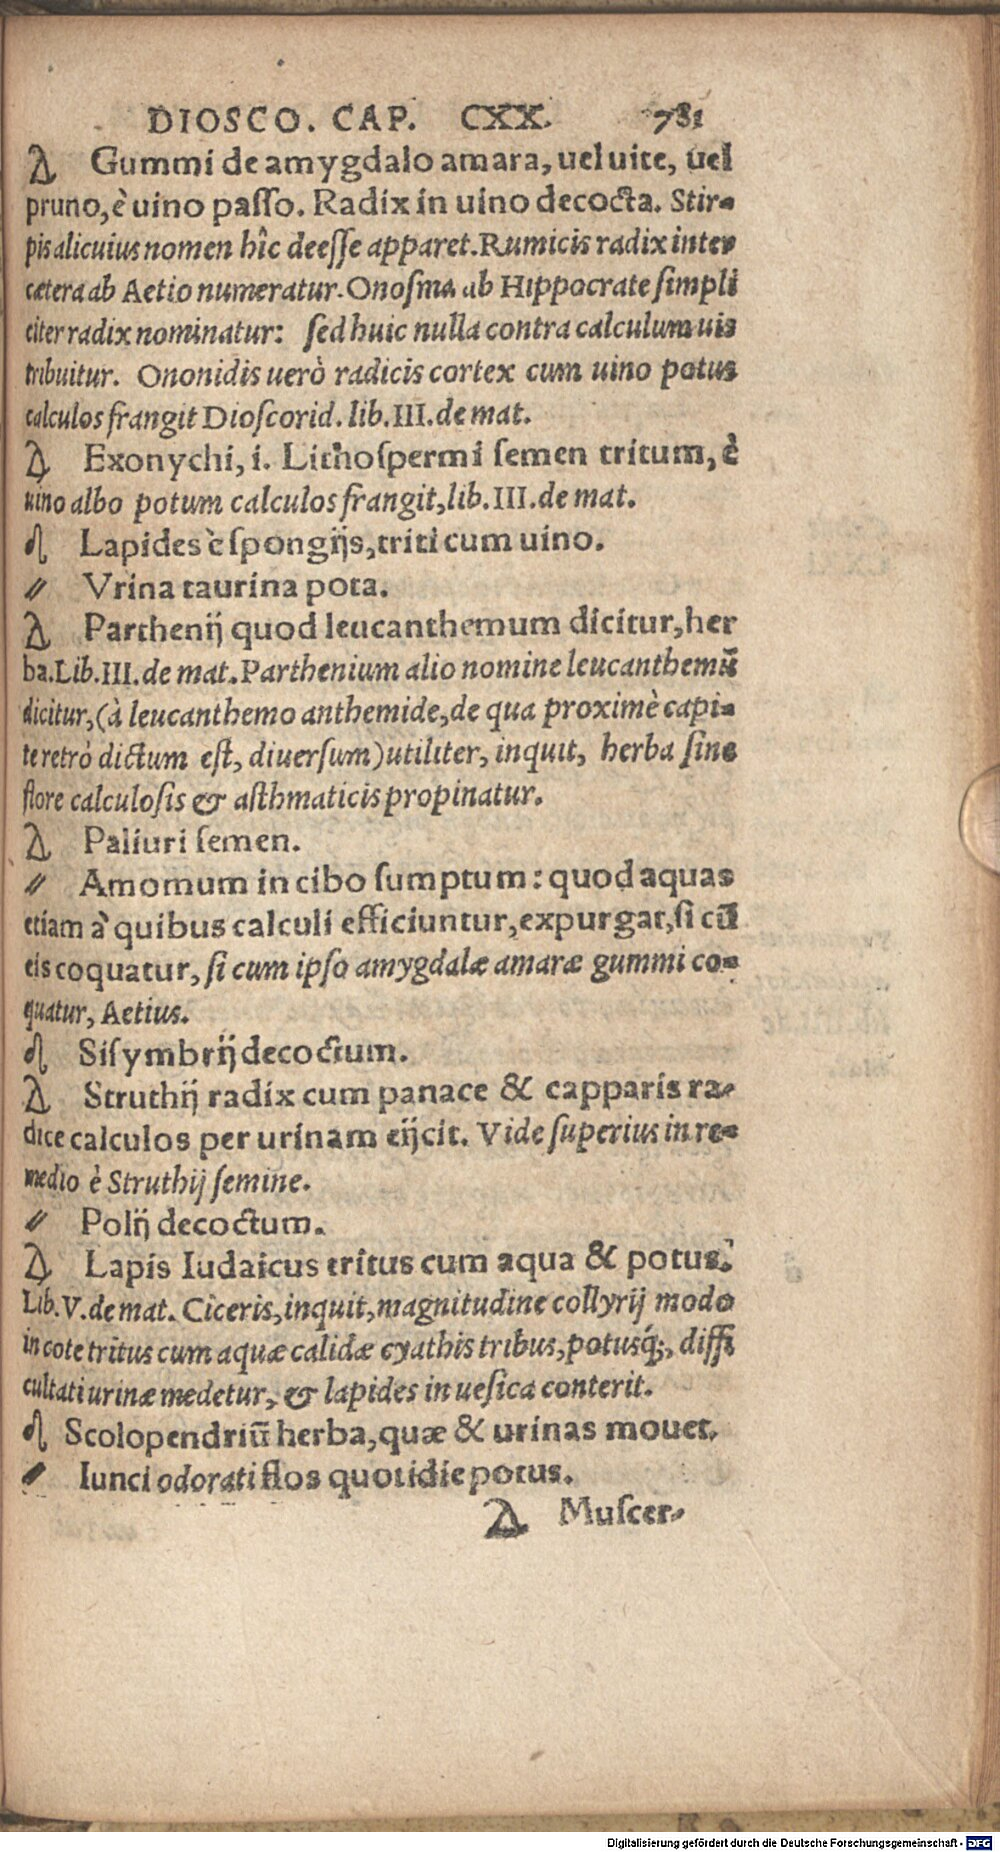 DIOSCO. CAP. CXX. 781
Gummi de amygdalo amara, uel uite, uel
pruno, è uino paſſo. Radix in uino decocta. Stir-
pis alicuius nomen hîc deeſſe apparet. Rumicis radix inter
cætera ab Aetio numeratur. Onoſma ab Hippocrate ſimpli
citer radix nominatur: ſed huic nulla contra calculum uis
tribuitur. Ononidis uerò radicis cortex cum uino potus
calculos frangit Dioſcorid. lib. III. de mat.
Exonychi, i. Lithoſpermi ſemen tritum, è
uino albo potum calculos frangit, lib. III. de mat.
Lapides è ſpongijs, triti cum uino.
〃 Vrina taurina pota.
Parthenij quod leucanthemum dicitur, her
ba. Lib. III. de mat. Parthenium alio nomine leucanthemũ
dicitur, (à leucanthemo anthemide, de qua proximè capi-
te retrò dictum eſt, diuerſum) utiliter, inquit, herba ſine
flore calculoſis & aſthmaticis propinatur.
Paliuri ſemen.
〃 Amomum in cibo ſumptum: quod aquas
etiam à quibus calculi efficiuntur, expurgat, ſi cũ
eis coquatur, ſi cum ipſo amygdalæ amaræ gummi co-
quatur, Aetius.
Siſymbrij decoctum.
Struthij radix cum panace & capparis ra-
dice calculos per urinam eijcit. Vide ſuperius in re-
medio è Struthij ſemine.
〃 Polij decoctum.
Lapis Iudaicus tritus cum aqua & potus.
Lib. V. de mat. Ciceris, inquit, magnitudine collyrij modo
in cote tritus cum aquæ calidæ cyathis tribus, potusq́;, diffi
cultati urinæ medetur, & lapides in ueſica conterit.
Scolopendriũ herba, quæ & urinas mouet.
〃 Iunci odorati flos quotidie potus.
Muſcer-
Digitalisierung gefördert durch die Deutsche Forschungsgemeinschaft - DFG